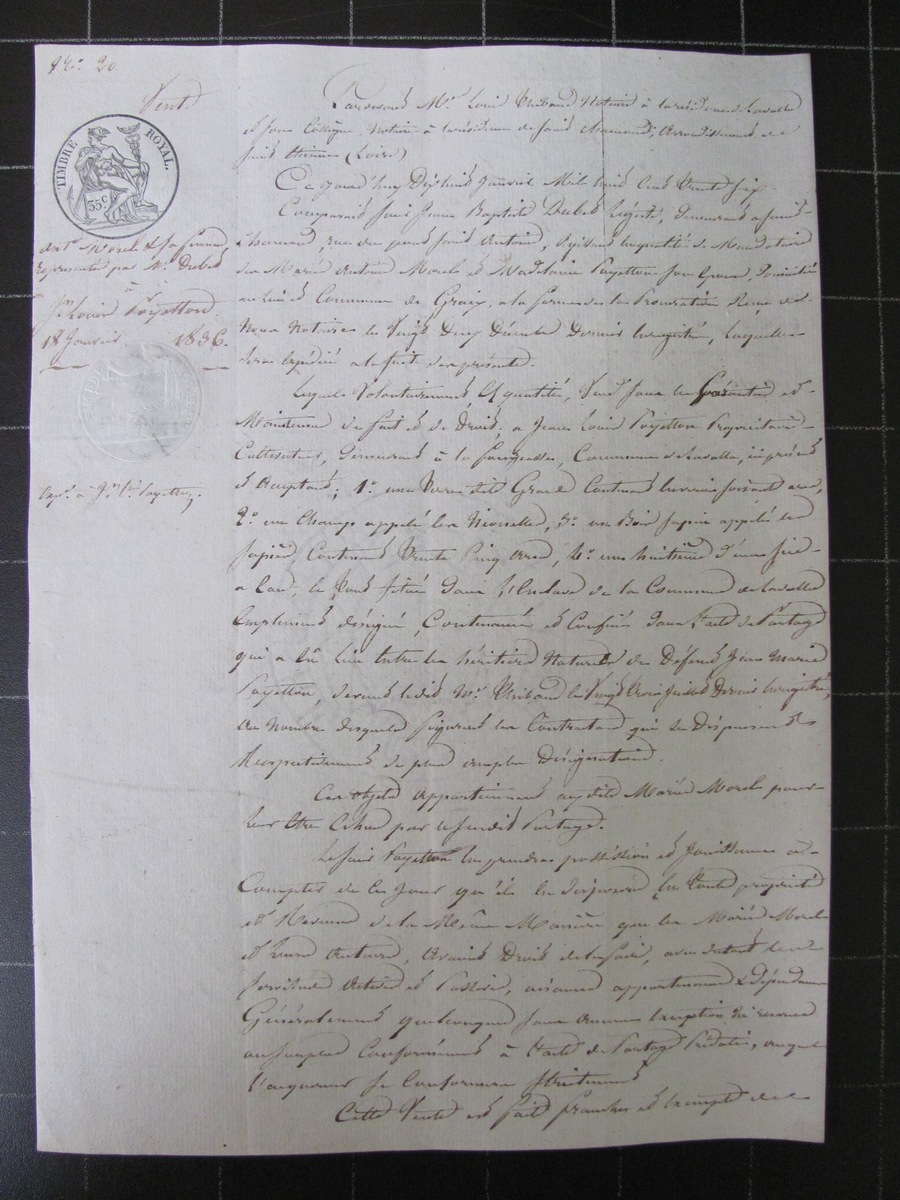 N.° 20.
Vente
TIMBRE ROYAL.
35 C.
Ant.e Morel & sa femme
représenté par Mr. Dubes
à
Jn. Louis Poyetton.
18 Janvier 1836.
Exp.n à Jn. Ls. Poyetton.
Pardevant Me. Louis Thibaud Notaire à la résidence de Lavalla
et son Collègue, Notaire à la résidence de Saint Chamond, Arrondissement de
Saint Etienne (Loire)
Ce jourd'huy Dixhuit Janvier Mil huit Cent Trente Six.
Comparait Sieur Jean Baptiste Dubes, demeurant à Saint
Chamond, rue du pont Saint Antoine, agissant en qualité de Mandataire
des Mariés Antoine Morel et Madelaine Poyetton son épouse, Domiciliés
au lieu et Commune de Graix, à la forme de la Procuration Reçue de
Nous Notaires le Vingt Deux Décembre Dernier Enregistré, laquelle
sera expédiée à la suite des présentes.
Lequel Volontairement, Es quantités, Vend sous les Garanties et
Maintenue de fait et de Droit; à Jean Louis Poyetton Propriétaire
Cultivateur, Demeurant à la, Commune de Lavalla, ici présent
et Acceptant; 1.° une Terre dite Grand Contenant environ soixante ares,
2.° un Champ appelé les, 3.° un Bois Sapin appelé les
Sapins, Contenant Trente Cinq Ares, 4.° une huitième d'une scie
à l'eau; le Tout situé dans l'Enclave de la Commune de Lavalla
Amplement désigné, Contenancé et Confiné dans l'acte de Partage
qui a Eu lieu entre les héritiers Naturels du Défunt Jean Marie
Poyetton, devant ledit Me. Thibaud le Vingt Trois Juillet Dernier Enregistré,
Au Nombre desquels figurent les Contractants qui se Dispensent
Respectivement de plus amples Désignations.
Ces objets Appartiennent auxdits Mariés Morel pour
leur Etre Echus par le susdit Partage.
Le Sieur Poyetton En prendra possession et Jouissance à
Compter de ce Jour qu'il En disposera En Toute propriété
et Revenus de la Même Manière que les Mariés Morel
et leurs Auteurs, Avaient Droit de le faire, avec toutes leurs
Servitudes Actives et Passives, aisances appartenances & Dépendances
Généralement quelconques sans aucune Exception ni réserve
au surplus Conformément à l'acte de Partage Prédaté, auquel
l'acquéreur se Conformera Strictement
Cette Vente est faite franche et Exempte de